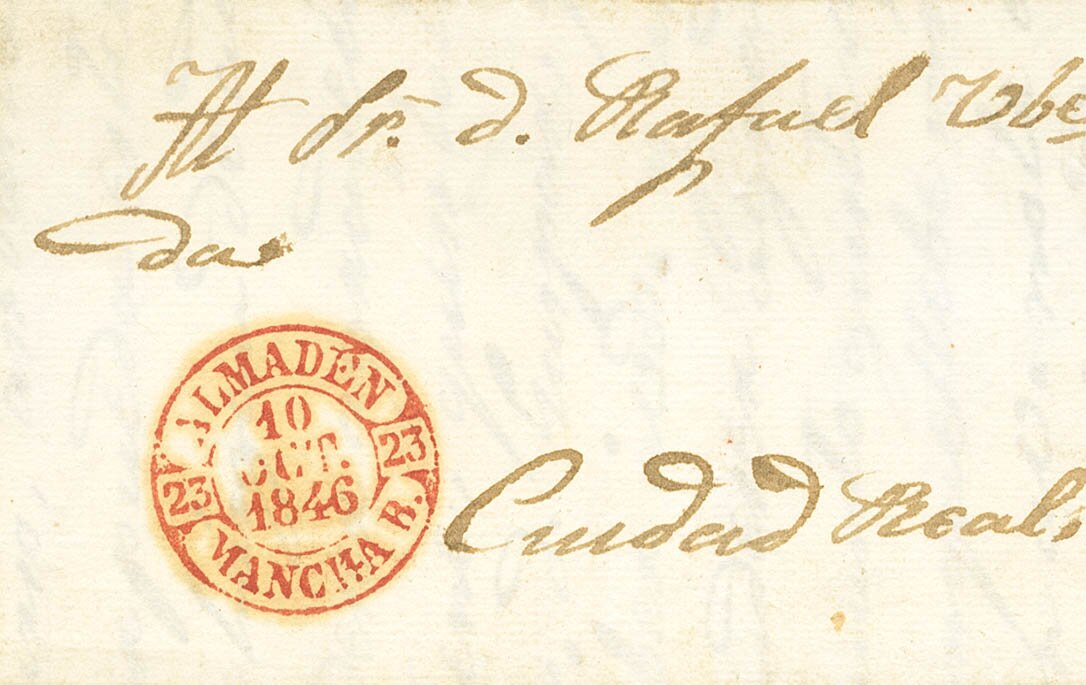 Al Sr. d. Rafael Ube
da
ALMADEN
10
OCT.
1846
23
23
MANCHA B.
Ciudad Real,